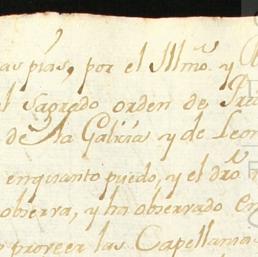 as pías, por el Illmo. y
l sagredo orden de
de la Galicia y de Leon
enquanto puedo, y el dro
obserra, y ha observado en
proveer las Capellanias